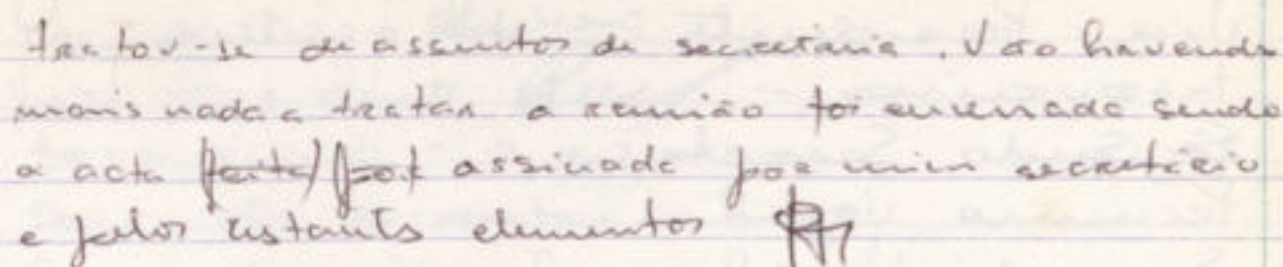 tratou-se de assuntos de secretaria. Não havendo
mais nada a tratar a reunião foi encerrada sendo
a acta assinada por mim secretário
e pelos restantes elementos